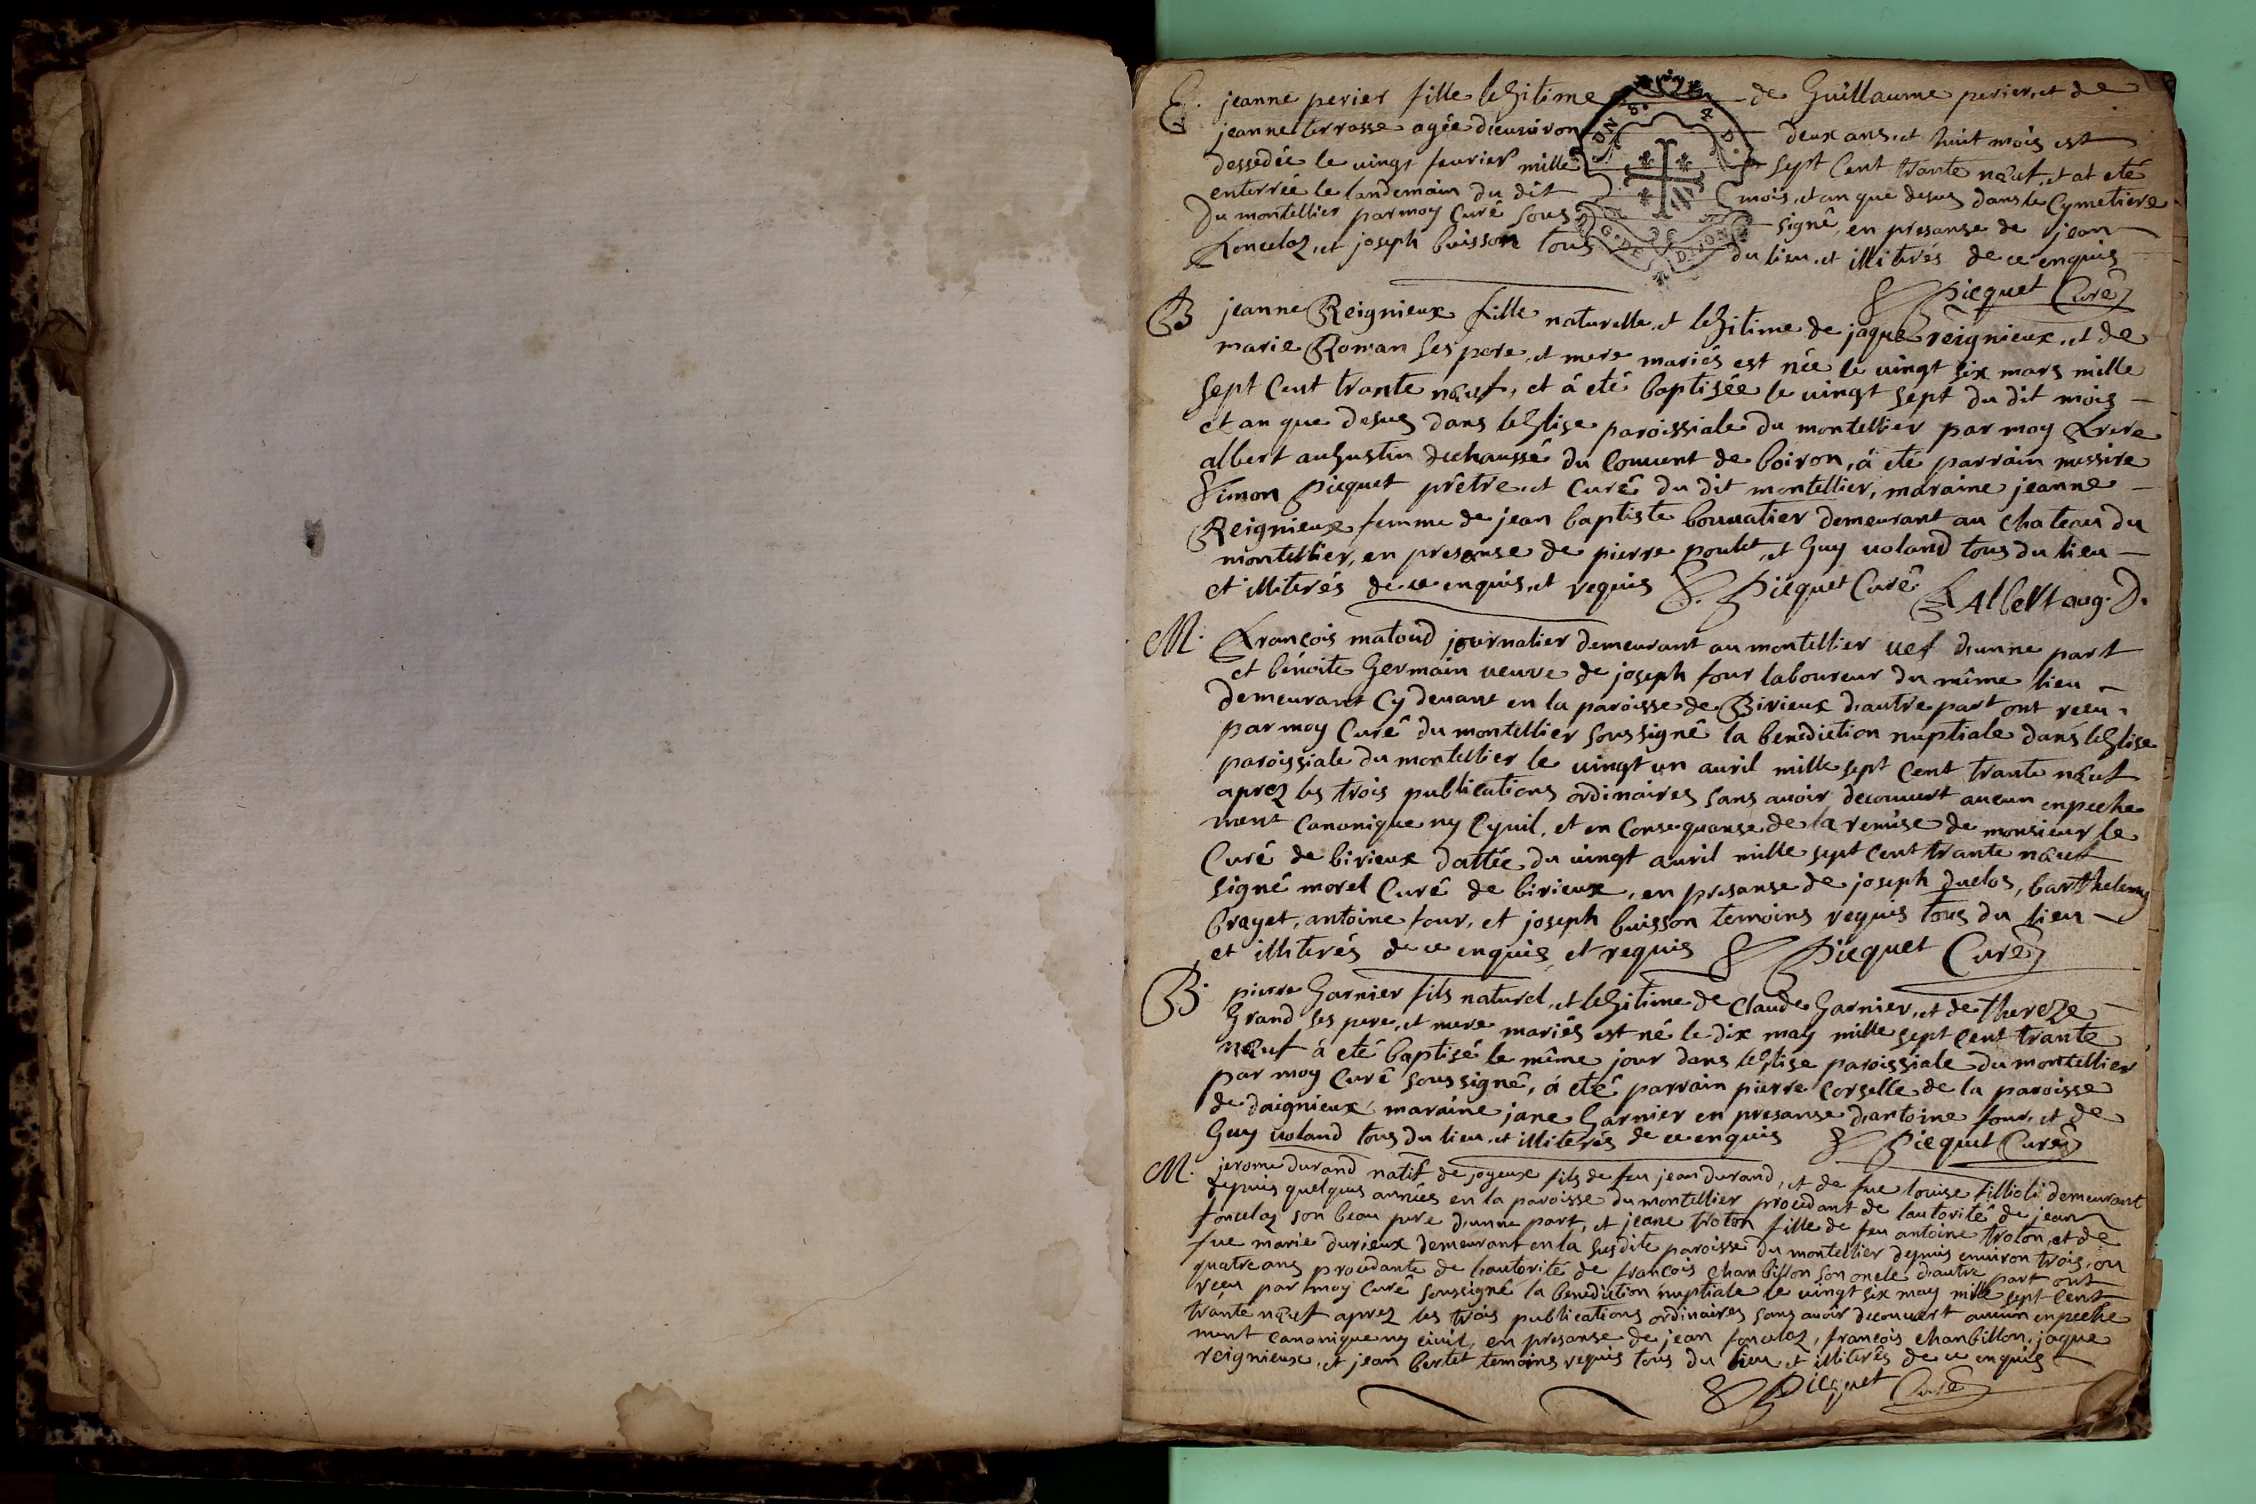 E. jeanne perier fille lehitime de Guillaume perier, et de
jeanne terrasse agée d'enuiron deux ans, et huit mois est
dessedée le uingt feurier mille sept Cent trante nœuf, et at eté
enterrée le landemain du dit mois, et an que desus dans le Cymetiere
Du montellier par moy Curé sous signé, en presanse de jean
fonselaz, et joseph buisson tous du lieu, et illiterés de ce enquis
S Picquet Curé
B jeanne Reignieux fille naturelle, et lehitime de jaque reignieux, et de
marie Roman ses pere, et mere mariés est née le uingt six mars mille
sept Cent trante nœuf, et á eté baptisée le uingt sept du dit mois
et an que desus dans lehlise paroissiale du montellier par moy frere
albert auhustin dechaussé du Couuent de boiron, á eté parrain messire
Simon Picquet prêtre, et Curé du dit montellier, maraine jeanne
Reignieux femme de jean baptiste bouuatier demeurant au chateau du
montellier, en presanse de pierre poulet, et Guy uoland tous du lieu
et illiterés de ce enquis, et requis S. Picquet Curé f Albert aug. D.
M. François matoud journalier demeurant au montellier uef d'unne part
et bénoite Germain ueuve de joseph four laboureur du même lieu
demeurant Cy deuant en la paroisse de Birieux d'autre part ont reçu
par moy Curé du montellier sous signé la benediction nuptiale dans lehlise
paroissiale du montellier le uingt un auril mille sept Cent trante nœuf
aprez les trois publications ordinaires sans auoir decouuert aucun enpeche
ment Canonique ny Cyuil, et en Consequanse de la remise de monsieur le
Curé de birieux dattée du uingt auril mille sept Cent trante nœuf
signé morel Curé de birieux, en presanse de joseph duclos, barthelemy
brayet, antoine four, et joseph buisson temoins requis tous du lieu
et illiterés de ce enquis, et requis S Picquet Curé
B. pierre Garnier fils naturel, et lehitime de Claude Garnier, et de thereze
Grand ses pere, et mere mariés est né le dix may mille sept Cent trante
nœuf á eté baptisé le même jour dans lehlise paroissiale du montellier
par moy Curé sous signé, á eté parrain pierre Corselle de la paroisse
de daignieux maraine jane Garnier en presanse d'antoine four, et de
Guy uoland tous du lieu, et illiterés de ce enquis S Picquet Curé
M. jerome durand natif de joyeux fils de feu jean durand, et de fue louise fillioli demeurant
depuis quelques années en la paroisse du montellier procedant de lautorité de jean
foncelaz son beau pere d'unne part, et jeane troton fille de feu antoine troton, et de
fue marie durieux demeurant en la susdite paroisse du montellier depuis enuiron trois, ou
quatre ans procedante de l'autorité de françois chanbillon son oncle d'autre part ont
reçu par moy Curé soussigné la benediction nuptiale le uingt six may mille sept Cent
trante nœuf aprez les trois publications ordinaires sans auoir decouuert aucun enpeche
ment canonique ny ciuil, en presanse de jean foncelaz, françois chanbillon, jaque
reignieux, et jean bertet temoins requis tous du lieu, et illiterés de ce enquis
S Picquet Curé